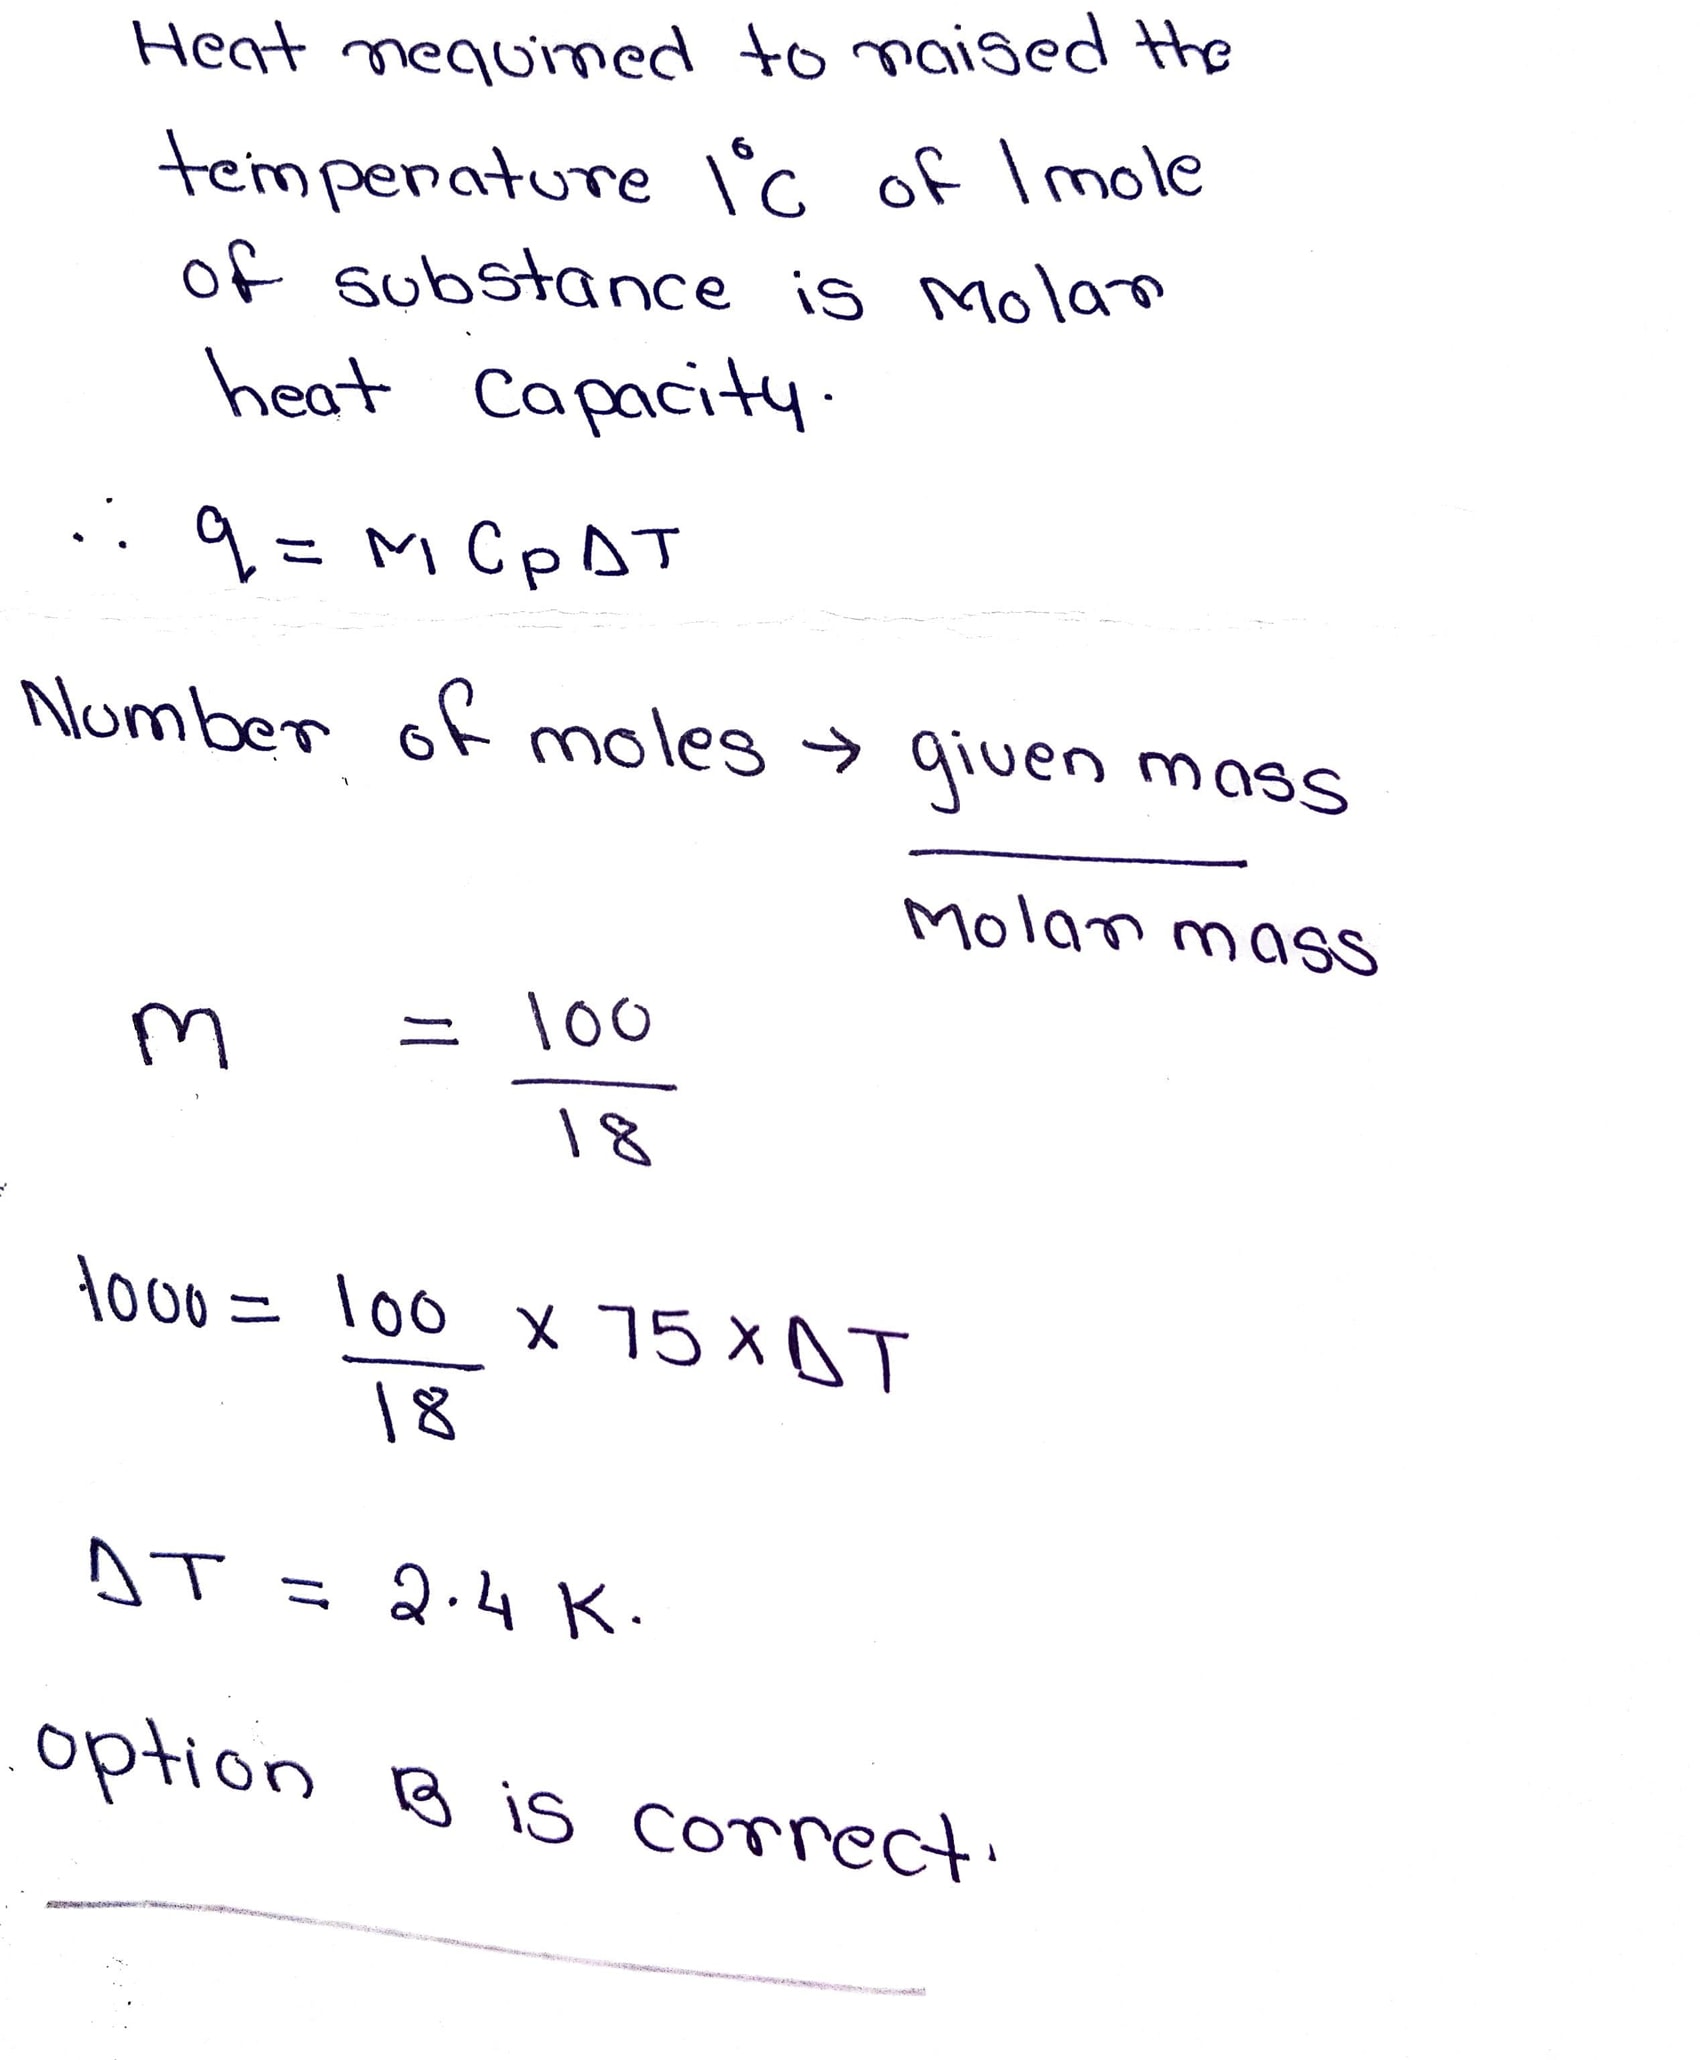 Heat required to raised the
temperature 1°C of 1 mole
of substance is Molar
heat capacity.
∴ q = M Cp ΔT
Number of moles → given mass
Molar mass
M = 100
18
1000 = 100 × 75 × ΔT
18
ΔT = 2.4 K.
option B is correct.